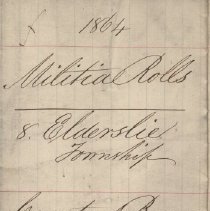 1864
Militia Rolls
8. Elderslie
Township